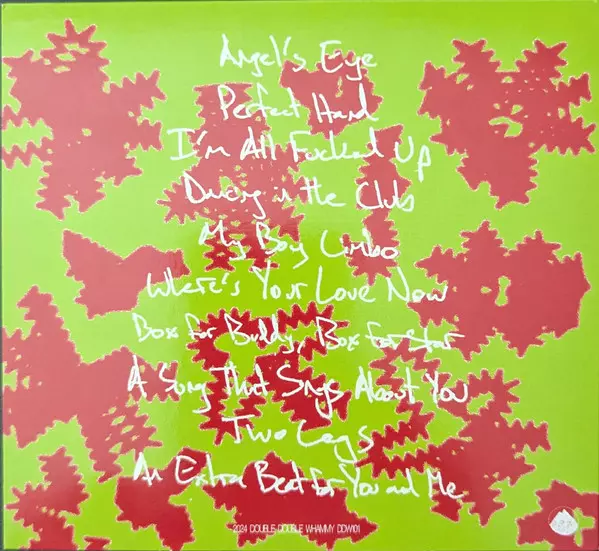 Angel's Eye
Perfect Hand
I'm All Fucked Up
Dancing in the Club
My Boy Limbo
Where's Your Love Now
Box for Buddy, Box for Star
A Song That Sings About You
Two Legs
An Extra Beat for You and Me
2024 DOUBLE DOUBLE WHAMMY DDW101